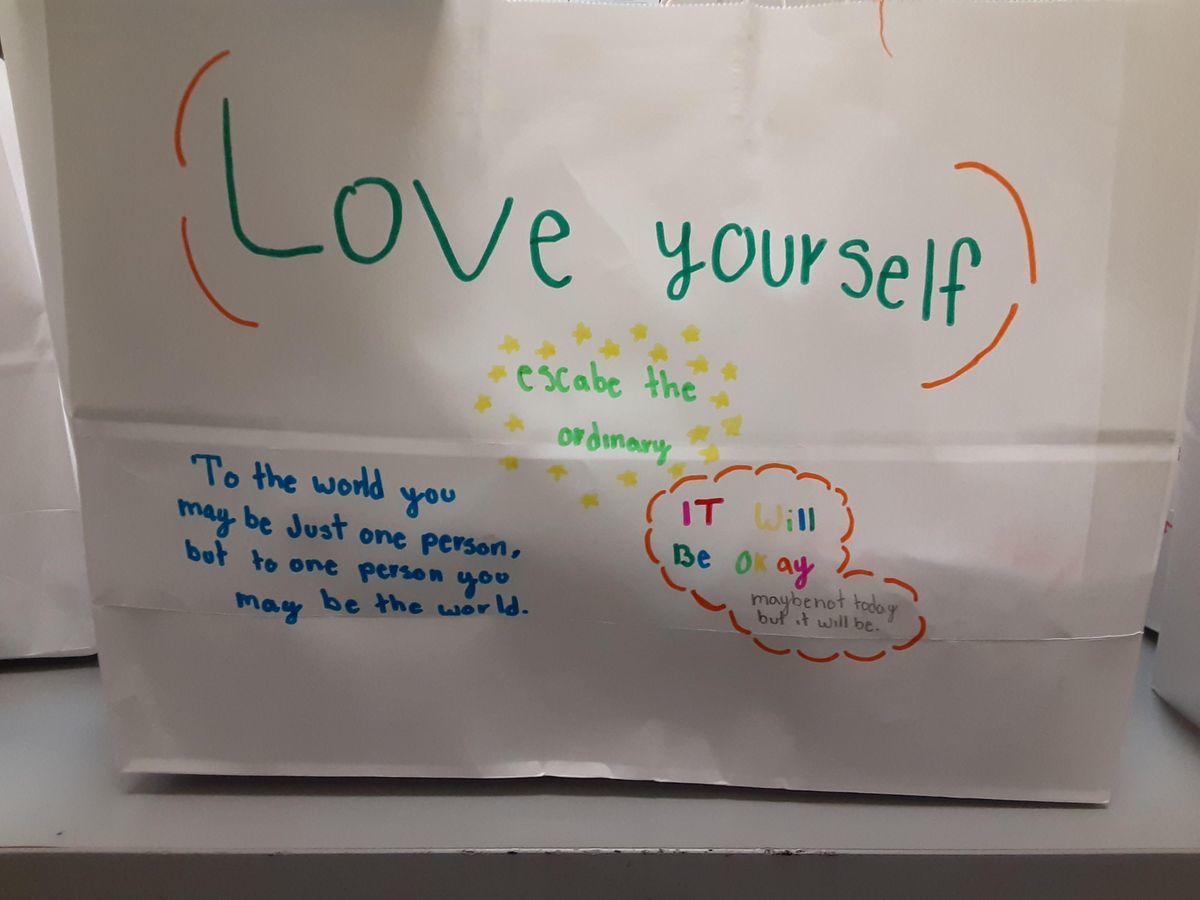 Love yourself
escabe the
ordinary
To the world you
may be Just one person,
but to one person you
may be the world.
IT Will
Be Okay
maybe not today
but it will be.